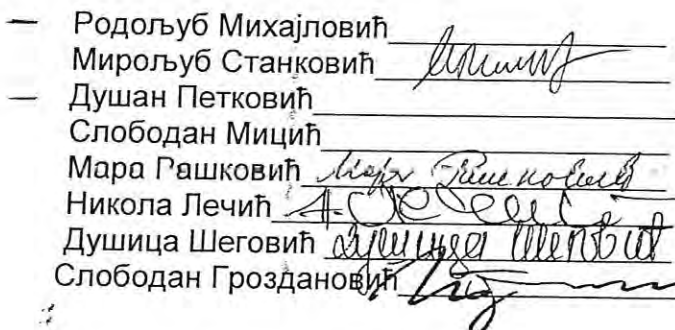 — Родољуб Михајловић
Мирољуб Станковић
— Душан Петковић
Слободан Мицић
Мара Рашковић Мара Рашковић
Никола Лечић
Душица Шеговић Душица Шеговић
Слободан Гроздановић